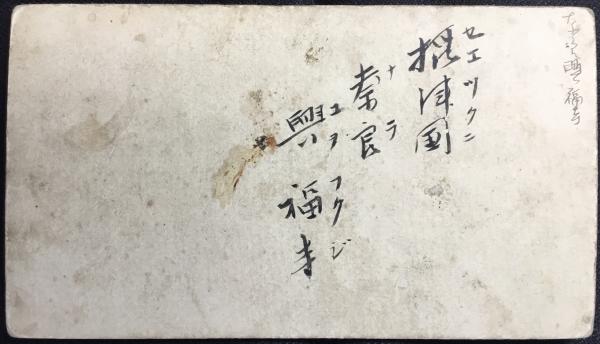 興福寺
セエツクニ
摂津国
ナラ
奈良
コヲフクジ
興福寺